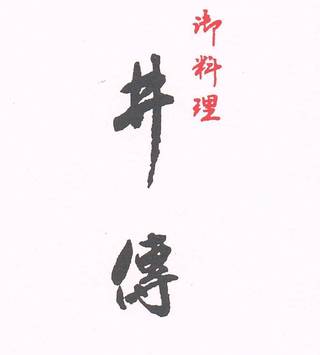 御料理
井傳